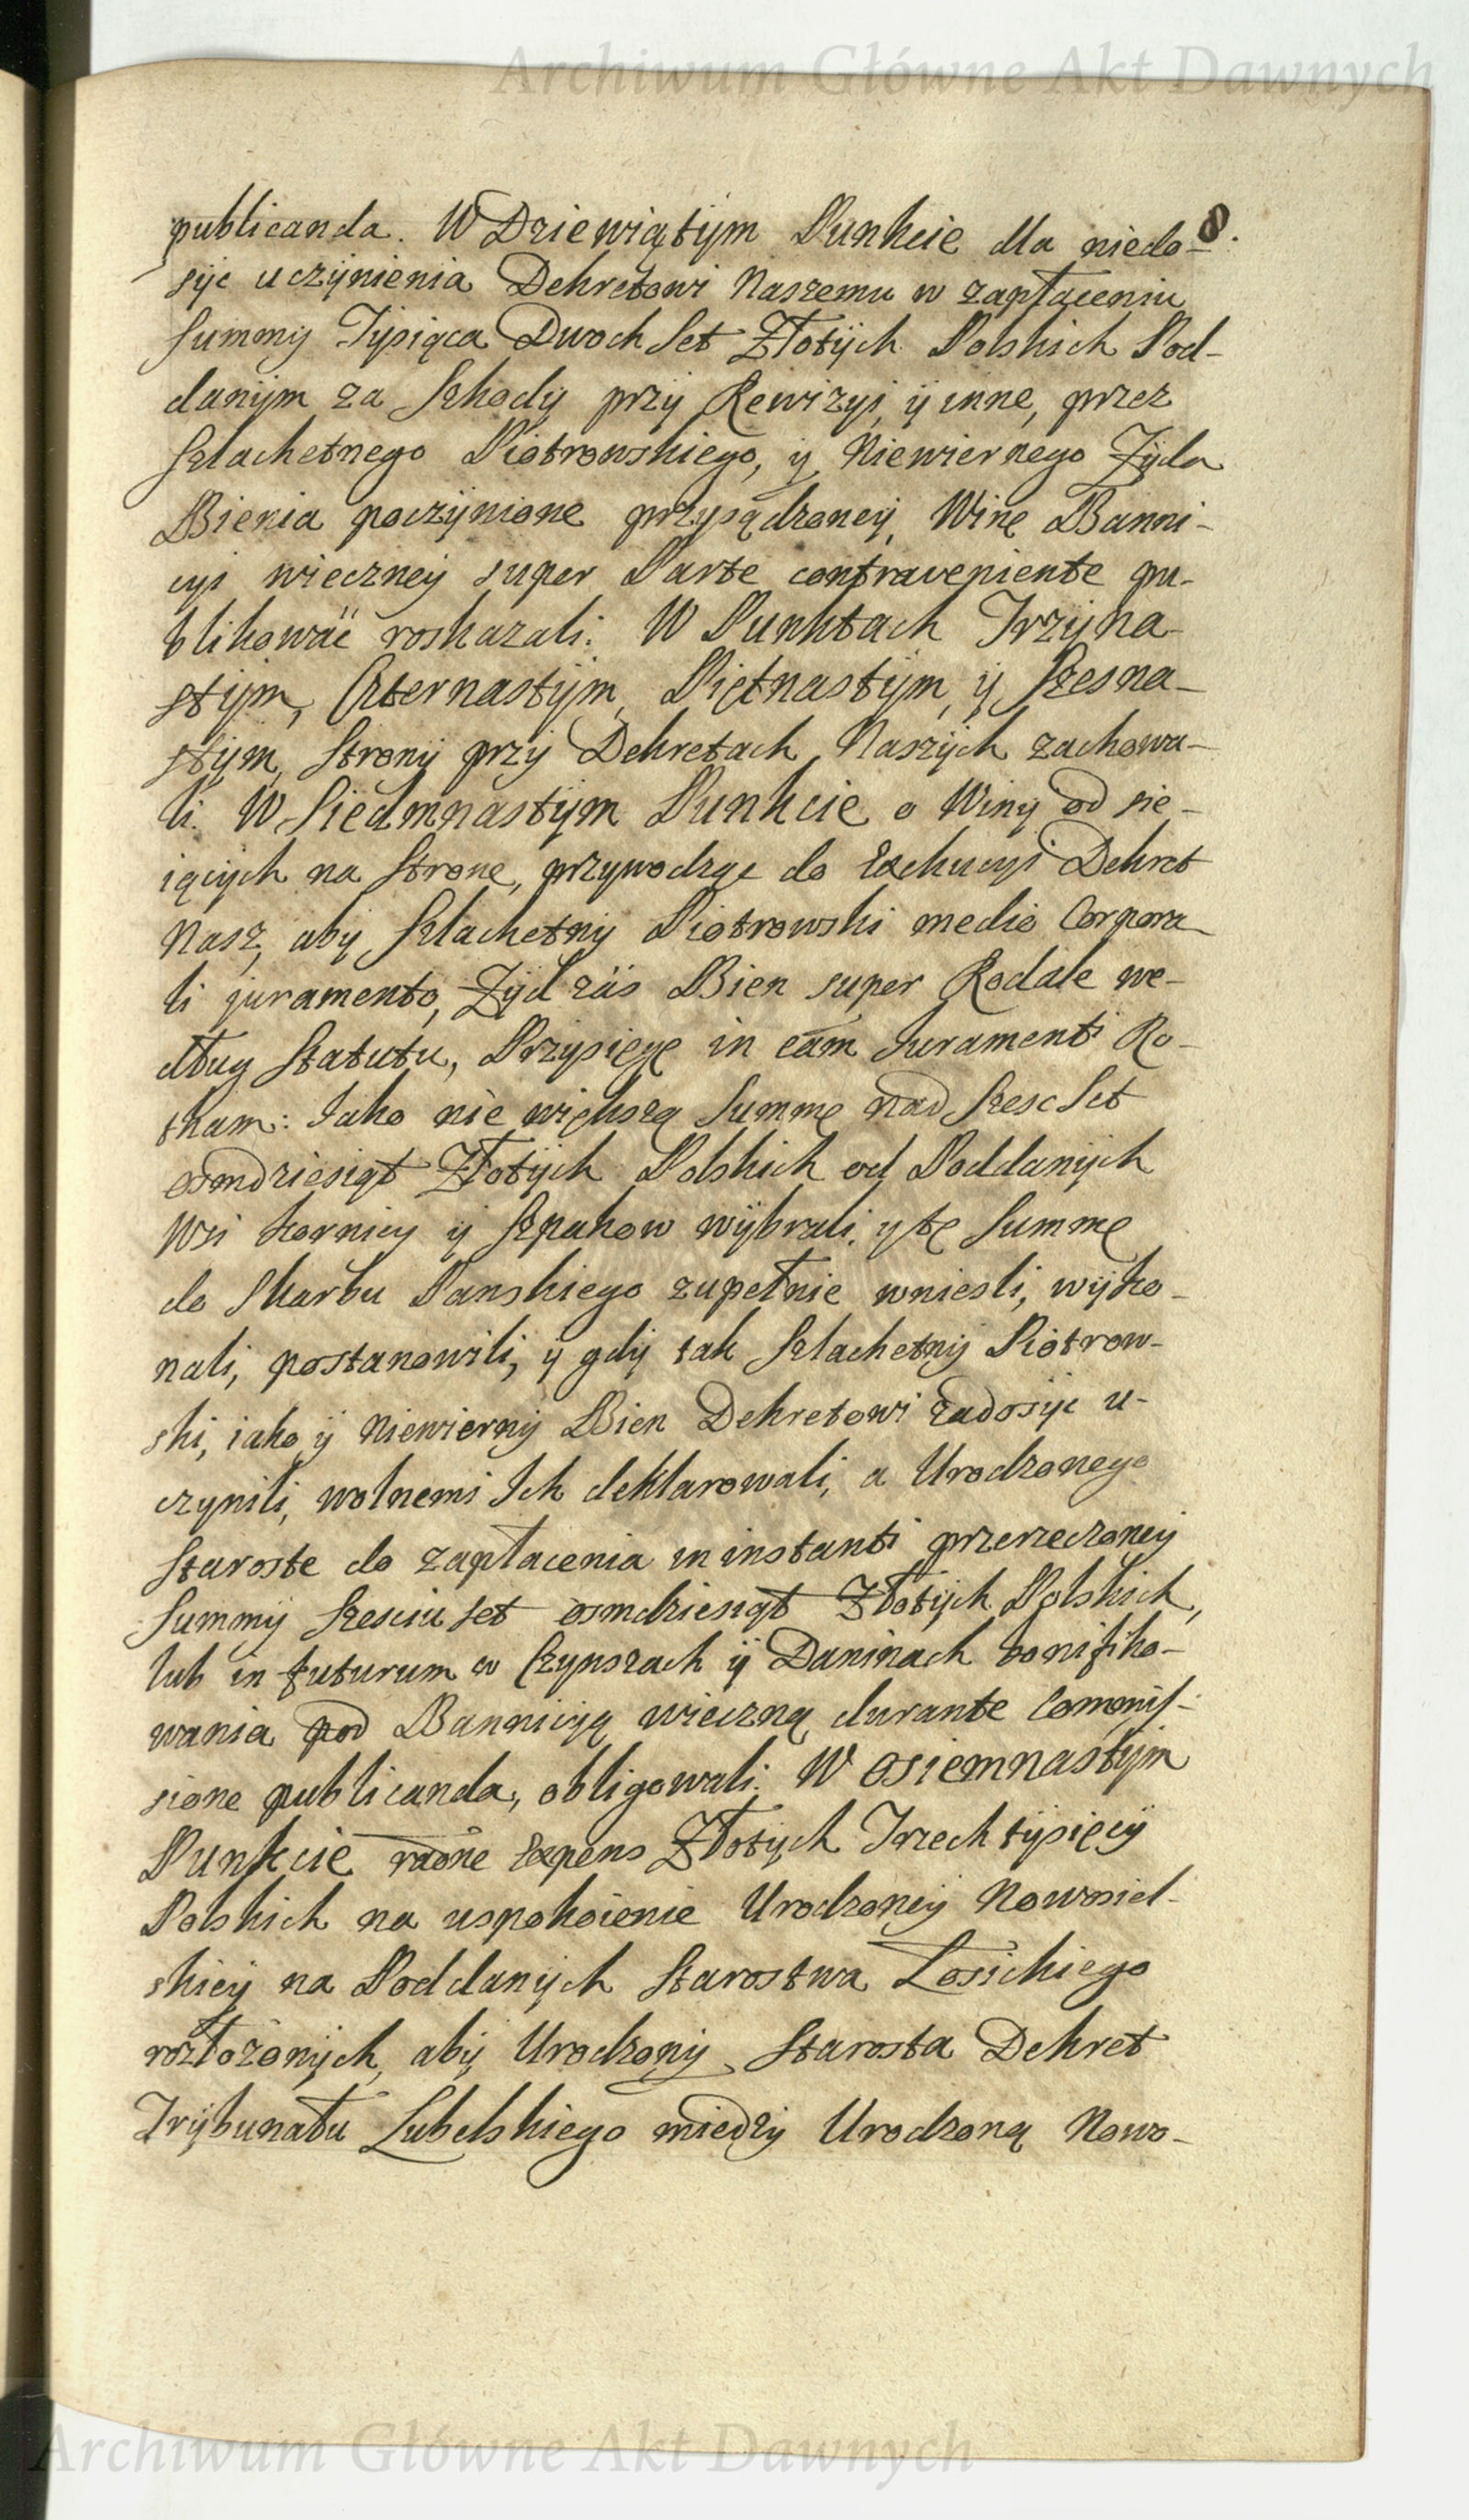 Archiwum Główne Akt Dawnych
8.
publicanda. W Dziewiątym Punkcie dla niedo-
syc uczynienia Dekretowi Naszemu w zapłaceniu
Summy Tysiąca Dwoch Set Złotych Polskich Pod-
danym za Szkody przy Rewizyi, y inne, przez
Szlachetnego Piotrowskiego, y Niewiernego Zyda
Bienia poczynione przysądzoney, Winę Banni-
cyi wieczney super Parte contraveniente pu-
blikowac roskazali. W Punktach Trzyna-
stym, Czternastym, Piętnastym, y Szesna-
stym, Strony przy Dekretach Naszych zachowa-
li. W Siedmnastym Punkcie o Winy od sie-
iących na Strone, przywodząc do Exekucyi Dekret
Nasz, aby Szlachetny Piotrowski medio Corpora-
li juramento, Zyd zas Bien super Rodale we-
dług Statutu, Przysięgę in eam Juramenti Ro-
tham: Jako nie większą Summę nad Szesc Set
osmdziesiąt Złotych Polskich od Poddanych
Wsi Kornicy y Szpakow wybrali, y tę Summę
do Skarbu Panskiego zupełnie wniesli, wyko-
nali, postanowili, y gdy tak Szlachetny Piotrow-
ski, iako y Niewierny Bien Dekretowi zadosyc u-
czynili, wolnemi Ich deklarowali, a Urodzonego
Staroste do zapłacenia in instanti przerzeczoney
Summy Szesciu set osmdziesiąt Złotych Polskich,
lub in futurum w Czynszach y Daninach bonifiko-
wania pod Bannicyą wieczną durante Commis-
sione publicanda, obligowali. W Osiemnastym
Punkcie ratione Expens Złotych Trzech tysięcy
Polskich na uspokoienie Urodzoney Nowosiel-
skiey na Poddanych Starostwa Łosickiego
rozłożonych, aby Urodzony Starosta Dekret
Trybunału Lubelskiego między Urodzoną Nowo-
Archiwum Główne Akt Dawnych